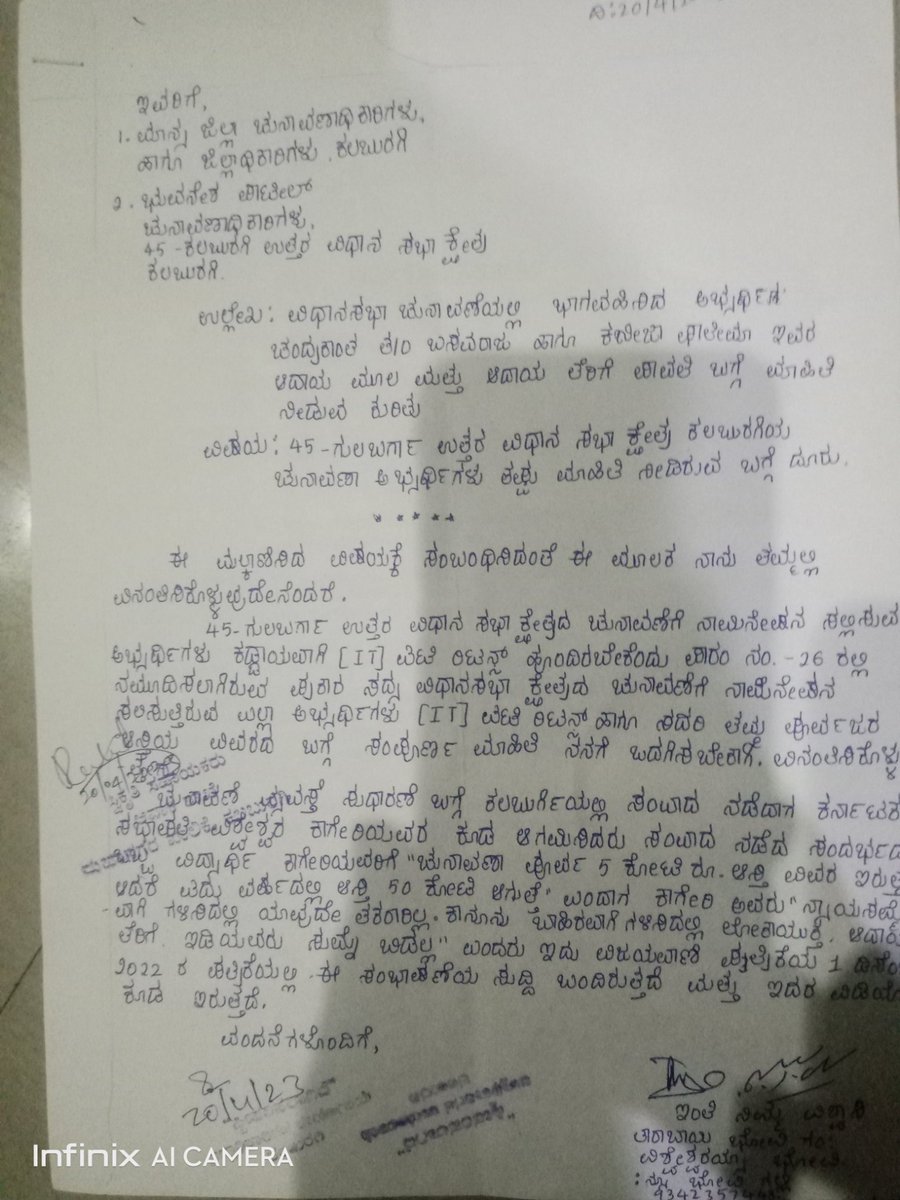 ದಿ:20/4/2
ಇವರಿಗೆ,
1. ಮಾನ್ಯ ಜಿಲ್ಲಾ ಚುನಾವಣಾಧಿಕಾರಿಗಳು,
ಹಾಗೂ ಜಿಲ್ಲಾಧಿಕಾರಿಗಳು ಕಲಬುರಗಿ
2. ಭುವನೇಶ ಪಾಟೀಲ್
ಚುನಾವಣಾಧಿಕಾರಿಗಳು,
45-ಕಲಬುರಗಿ ಉತ್ತರ ವಿಧಾನ ಸಭಾ ಕ್ಷೇತ್ರ
ಕಲಬುರಗಿ.
ಉಲ್ಲೇಖ: ವಿಧಾನಸಭಾ ಚುನಾವಣೆಯಲ್ಲಿ ಭಾಗವಹಿಸಿದ ಅಭ್ಯರ್ಥಿಗಳ
ಚಂದ್ರಕಾಂತ ತ/ಂ ಬಸವರಾಜ ಹಾಗೂ ಕನೀಜಾ ಫಾತೀಮಾ ಇವರ
ಆದಾಯ ಮೂಲ ಮತ್ತು ಆದಾಯ ತೆರಿಗೆ ಪಾವತಿ ಬಗ್ಗೆ ಮಾಹಿತಿ
ನೀಡುವ ಕುರಿತು
ವಿಷಯ: 45-ಗುಲಬರ್ಗಾ ಉತ್ತರ ವಿಧಾನ ಸಭಾ ಕ್ಷೇತ್ರ ಕಲಬುರಗಿಯ
ಚುನಾವಣಾ ಅಭ್ಯರ್ಥಿಗಳು ತಪ್ಪು ಮಾಹಿತಿ ನೀಡಿರುವ ಬಗ್ಗೆ ದೂರು.
* * * * *
ಈ ಮೇಲ್ಕಾಣಿಸಿದ ವಿಷಯಕ್ಕೆ ಸಂಬಂಧಿಸಿದಂತೆ ಈ ಮೂಲಕ ನಾನು ತಮ್ಮಲ್ಲಿ
ವಿನಂತಿಸಿಕೊಳ್ಳುವುದೇನೆಂದರೆ.
45-ಗುಲಬರ್ಗಾ ಉತ್ತರ ವಿಧಾನ ಸಭಾ ಕ್ಷೇತ್ರದ ಚುನಾವಣೆಗೆ ನಾಮಿನೇಷನ ಸಲ್ಲಿಸುವ
ಅಭ್ಯರ್ಥಿಗಳು ಕಡ್ಡಾಯವಾಗಿ [IT] ಐಟಿ ರಿಟರ್ನ್ಸ್ ಹೊಂದಿರಬೇಕೆಂದು ಫಾರಂ ನಂ.-26 ರಲ್ಲಿ
ನಮೂದಿಸಲಾಗಿರುವ ಪ್ರಕಾರ ಸದ್ಯ ವಿಧಾನಸಭಾ ಕ್ಷೇತ್ರದ ಚುನಾವಣೆಗೆ ನಾಮಿನೇಷನ
ಸಲಿಸುತ್ತಿರುವ ಎಲ್ಲಾ ಅಭ್ಯರ್ಥಿಗಳು [IT] ಐಟಿ ರಿಟರ್ನ್ಸ್ ಹಾಗೂ ಸದರಿ ತಮ್ಮ ಪೂರ್ವಜರ
ಆಸ್ತಿಯ ವಿವರದ ಬಗ್ಗೆ ಸಂಪೂರ್ಣ ಮಾಹಿತಿ ನನಗೆ ಒದಗಿಸಬೇಕಾಗಿ. ವಿನಂತಿಸಿಕೊಳ್ಳು
ಚುನಾವಣೆ ವ್ಯವಸ್ಥೆ ಸುಧಾರಣೆ ಬಗ್ಗೆ ಕಲಬುರ್ಗಿಯಲ್ಲಿ ಸಂವಾದ ನಡೆದಾಗ ಕರ್ನಾಟಕ
ಸಭಾಪತಿ ವಿಶ್ವೇಶ್ವರ ಕಾಗೇರಿಯವರ ಕೂಡ ಆಗಮಿಸಿದರು ಸಂವಾದ ನಡೆದ ಸಂದರ್ಭದ
ವಿದ್ಯಾರ್ಥಿ ಕಾಗೇರಿಯವರಿಗೆ "ಚುನಾವಣಾ ಪೂರ್ವ 5 ಕೋಟಿ ರೂ. ಆಸ್ತಿ ವಿವರ ಇರುತ್ತ
ಆದರೆ ಐದು ವರ್ಷದಲ್ಲಿ ಆಸ್ತಿ 50 ಕೋಟಿ ಆಗುತ್ತೆ" ಎಂದಾಗ ಕಾಗೇರಿ ಅವರು "ನ್ಯಾಯಸಮ್ಮ
-ವಾಗಿ ಗಳಿಸಿದಲ್ಲಿ ಯಾವುದೇ ತಕರಾರಿಲ್ಲ. ಕಾನೂನು ಬಾಹಿರವಾಗಿ ಗಳಿಸಿದಲ್ಲಿ ಲೋಕಾಯುಕ್ತ, ಆದಾಯ
ತೆರಿಗೆ. ಇಡಿಯವರು ಸುಮ್ನೆ ಬಿಡೆಲ್ಲ" ಎಂದರು ಇದು ವಿಜಯವಾಣಿ ಪತ್ರಿಕೆಯ 1 ಡಿಸೆಂ
2022 ರ ಪತ್ರಿಕೆಯಲ್ಲಿ. ಈ ಸಂಭಾಷಣೆಯ ಸುದ್ದಿ ಬಂದಿರುತ್ತದೆ ಮತ್ತು ಇದರ ವಿಡಿಯೋ
ಕೂಡ ಇರುತ್ತದೆ.
ವಂದನೆಗಳೊಂದಿಗೆ,
20/4/23
ಇಂತಿ ನಿಮ್ಮ ವಿಶ್ವಾಸಿ
ತಾರಾಬಾಯಿ ಭೋವಿ ಗಂ:
ವಿಶ್ವೇಶ್ವರಯ್ಯಾ ಭೋವಿ
Infinix AI CAMERA